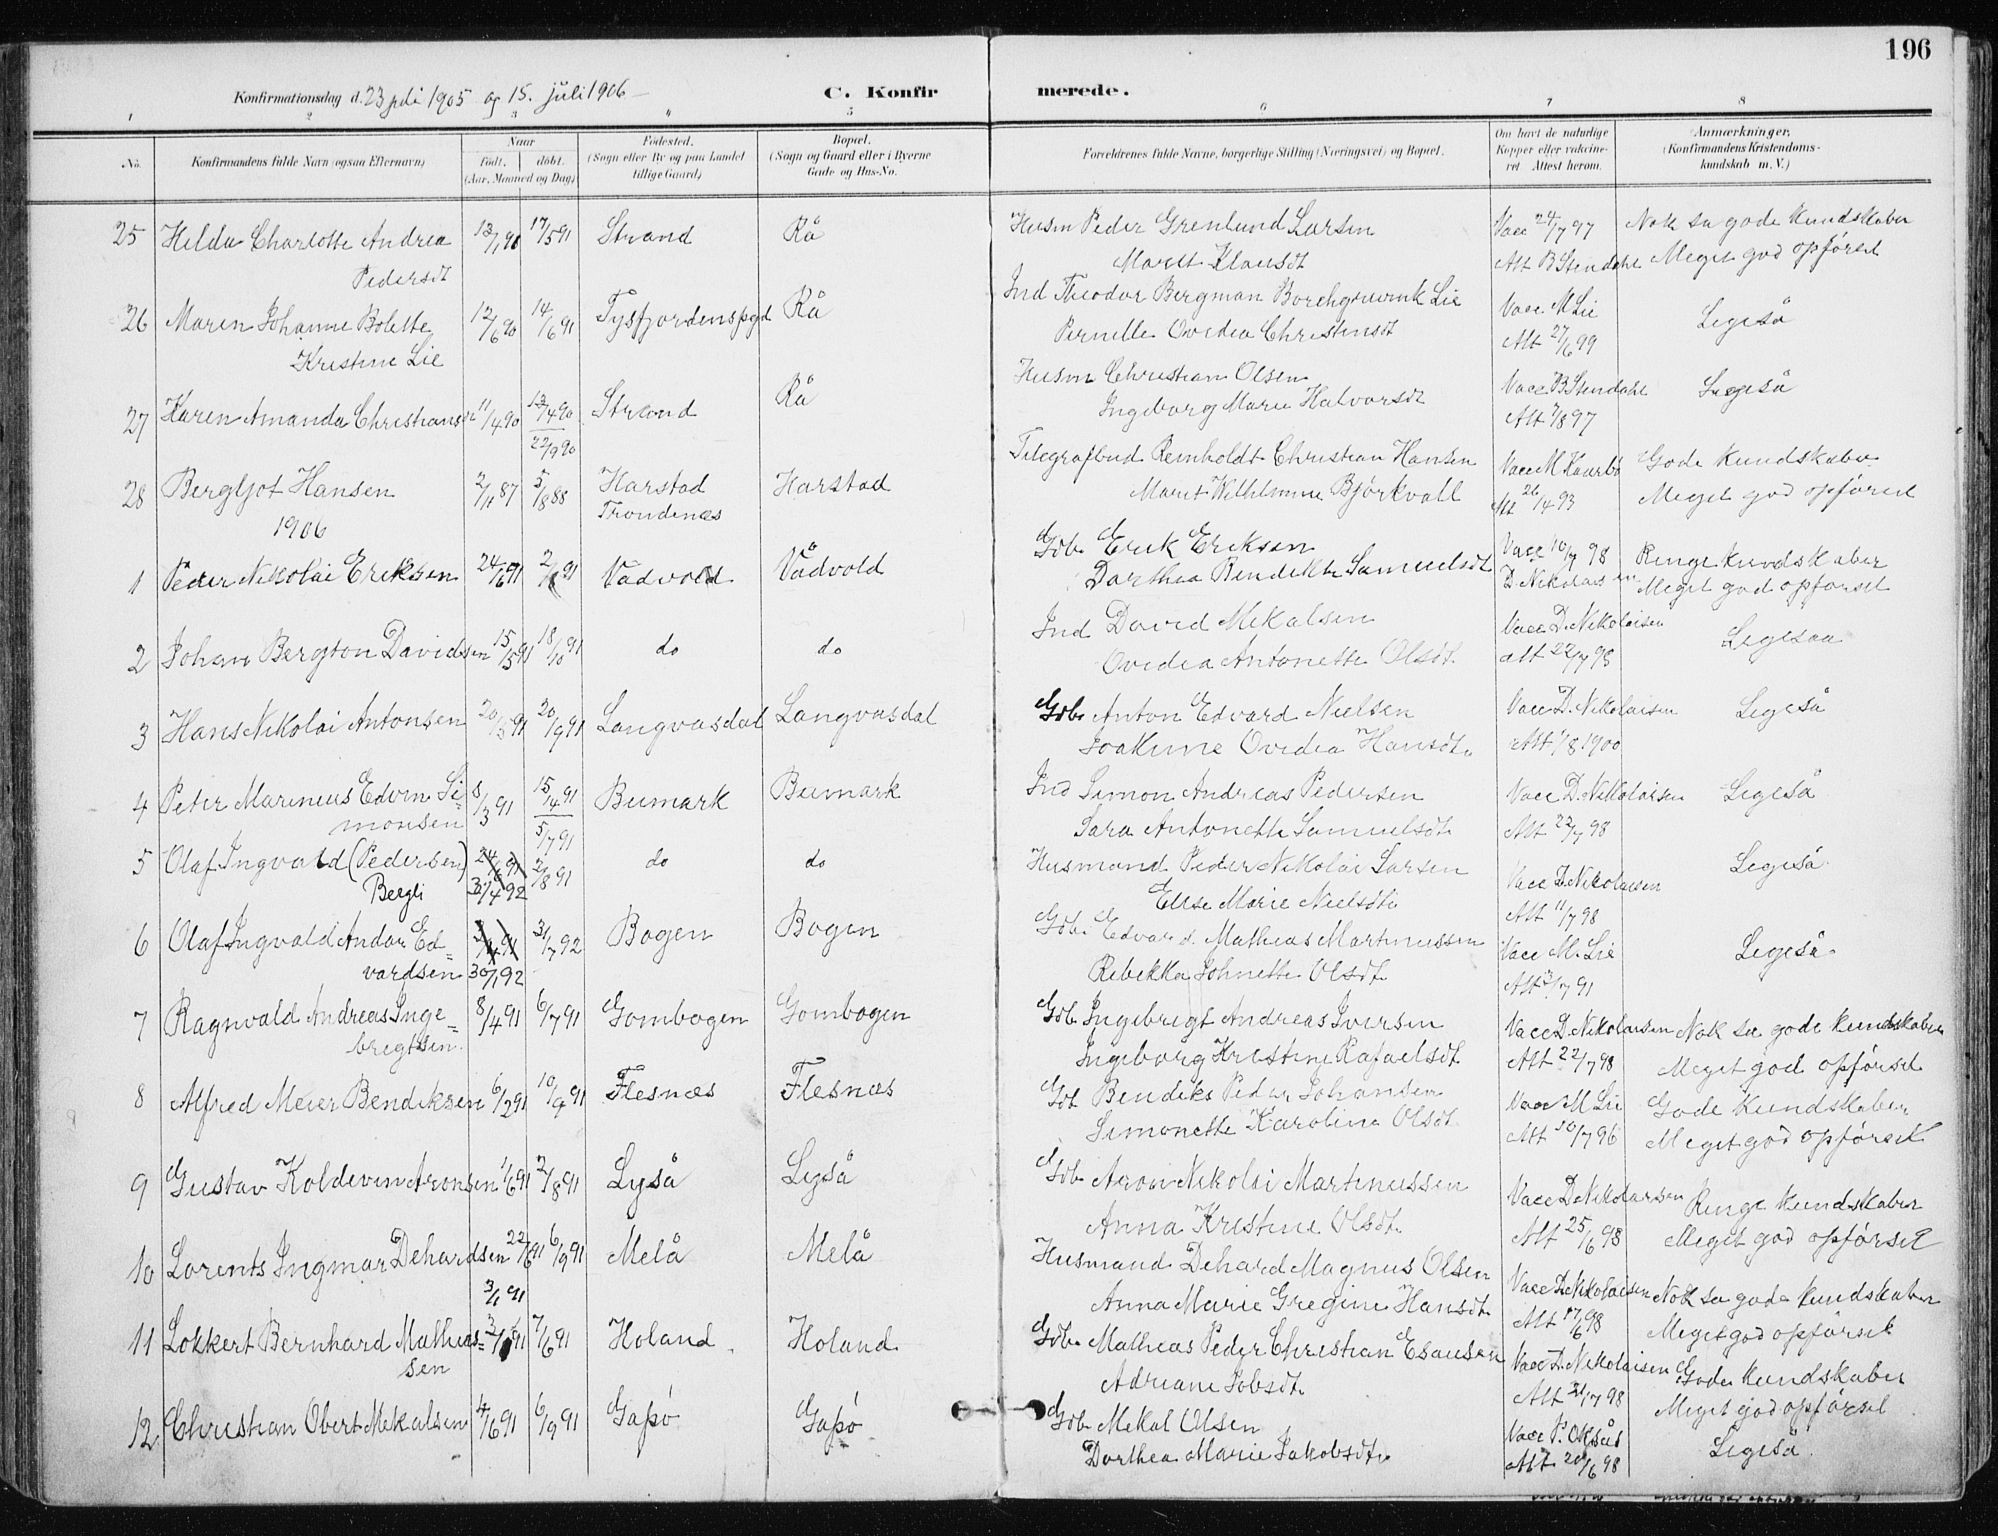 196
Konfirmationsdag d. 23 juli 1905 og 15. juli 1906
C. Konfirmerede.
1 2 3 4 5 6 7 8
No. Konfirmandens fulde Navn (ogsaa Efternavn) Naar født. døbt. (Aar, Maaned og Dag) Fødested. (Sogn eller By og paa Landet tillige Gaard) Bopæl. (Sogn og Gaard eller i Byerne Gade og Hus-No. Forældrenes fulde Navne, borgerlige Stilling (Næringsvei) og Bopæl. Om havt de naturlige Kopper eller vakcineret. Attest herom. Anmærkninger. (Konfirmandens Kristendomskundskab m. V.)
25 Hilda Charlotte Andrea 17/5 91 Strand Rå Husm Peder Grenlund Larsen Vacc 24/7 97 Nok sa gode kundskaber
Pedersdt Marit Klausdt Att B Stendahl Meget god opførsel
26 Maren Johanne Bolette 12/6 90 14/6 91 Tysfjordenspgd Rå Ind Theodor Bergman Borchgrevink Lie Vacc. M Lie Ligeså
Kristine Lie Pernille Ovidia Christensdt Att 27/6 99
27 Karen Amanda Christiansdt 11/4 90 13/4 90 Strand Rå Husm Christian Olsen Vacc B Stendahl Ligeså
22/9 90 Ingeborg Marie Halvorsdt Att 7/8 97
28 Bergljot Hansen 87 5/8 88 Harstad Harstad Telegrafbud Reinholdt Christian Hansen Vacc M Kaarbø Gode kundskaber
Trondenæs Marit Wilhelmine Bjørkvall Att 26/4 93 Meget god opførsel
1906
1 Peder Nikolai Eriksen 24/6 91 2/8 91 Vådvold Vådvold Gdb. Erik Eriksen Vacc 10/7 98 Ringe kundskaber
Dorthea Bendikte Samuelsdt D. Nikolaisen Meget god opførsel
2 Johan Bergton Davidsen 15/5 91 18/10 91 do do Ind David Mikalsen Vacc D. Nikolaisen Ligesaa
Ovidia Antonette Olsdt. att 22/7 98
3 Hans Nikolai Antonsen 20/5 91 20/9 91 Langvasdal Langvasdal Gdb. Anton Edvard Nielsen Vacc D. Nikolaisen Ligeså
Joakime Ovidia Hansdt. Att 1/8 1900
4 Peter Marenius Edvin Si= 8/3 91 15/4 91 Bumark Bumark Ind Simon Andreas Pedersen Vacc D. Nikolaisen Ligeså
monsen 5/7 91 Sara Antonette Samuelsdt. Att 22/7 98
5 Olaf Ingvald (Pedersen) 24/6 91 2/8 91 do do Husmand Peder Nikolai Larsen Vacc D. Nikolaisen Ligeså
Bergli 30/4 92 Elise Marie Nielsdt. Att 11/7 98
6 Olaf Ingvald Andor Ed= 3/4 91 31/7 92 Bogen Bogen Gdb. Edvard Mathias Martinussen Vacc M. Lie Ligeså
vardsen 30/1 92 Rebekka Johnette Olsdt. Att 3/7 91
7 Ragnvald Andreas Inge= 8/4 91 6/7 91 Gombogen Gombogen Gdb. Ingebrigt Andreas Iversen Vacc D. Nikolaisen Nok sa gode kundskaber
brigtsen Ingeborg Kristine Rafaelsdt. Att 22/7 98 Meget god opførsel
8 Alfred Meier Bendiksen 6/2 91 10/9 91 Flesnæs Flesnæs Gdb Bendiks Peder Johansen Vacc M Lie Gode kundskaber
Simonette Karoline Olsdt. Att 10/7 96 Meget god opførsel
9 Gustav Koldevin Aronsen 1/6 91 2/8 91 Lyså Lyså Gdb. Aron Nikolai Martinussen Vacc D. Nikolaisen Ringe kundskaber
Anna Kristine Olsdt. Att 25/6 98 Meget god opførsel
10 Lorents Ingmar Dehardsen 22/6 91 6/9 91 Melå Melå Husmand Dehard Magnus Olsen Vacc D. Nikolaisen Nok sa gode kundskaber
Anna Marie Gregine Hansdt. Att 17/6 98 Meget god opførsel
3/1 91
11 Lokkert Bernhard Mathias= 7/6 91 Holand Holand Gdb. Mathias Peder Christian Esausen Vacc D. Nikolaisen Gode kundskaber
sen Adriane Jobsdt. Att 21/7 98 Meget god opførsel
12 Christian Obert Mikalsen 4/6 91 6/9 91 Gapø Gapø Gdb. Mikal Olsen Vacc P. Oksås Ligeså
Dorthea Marie Jakobsdt. Att 20/6 98